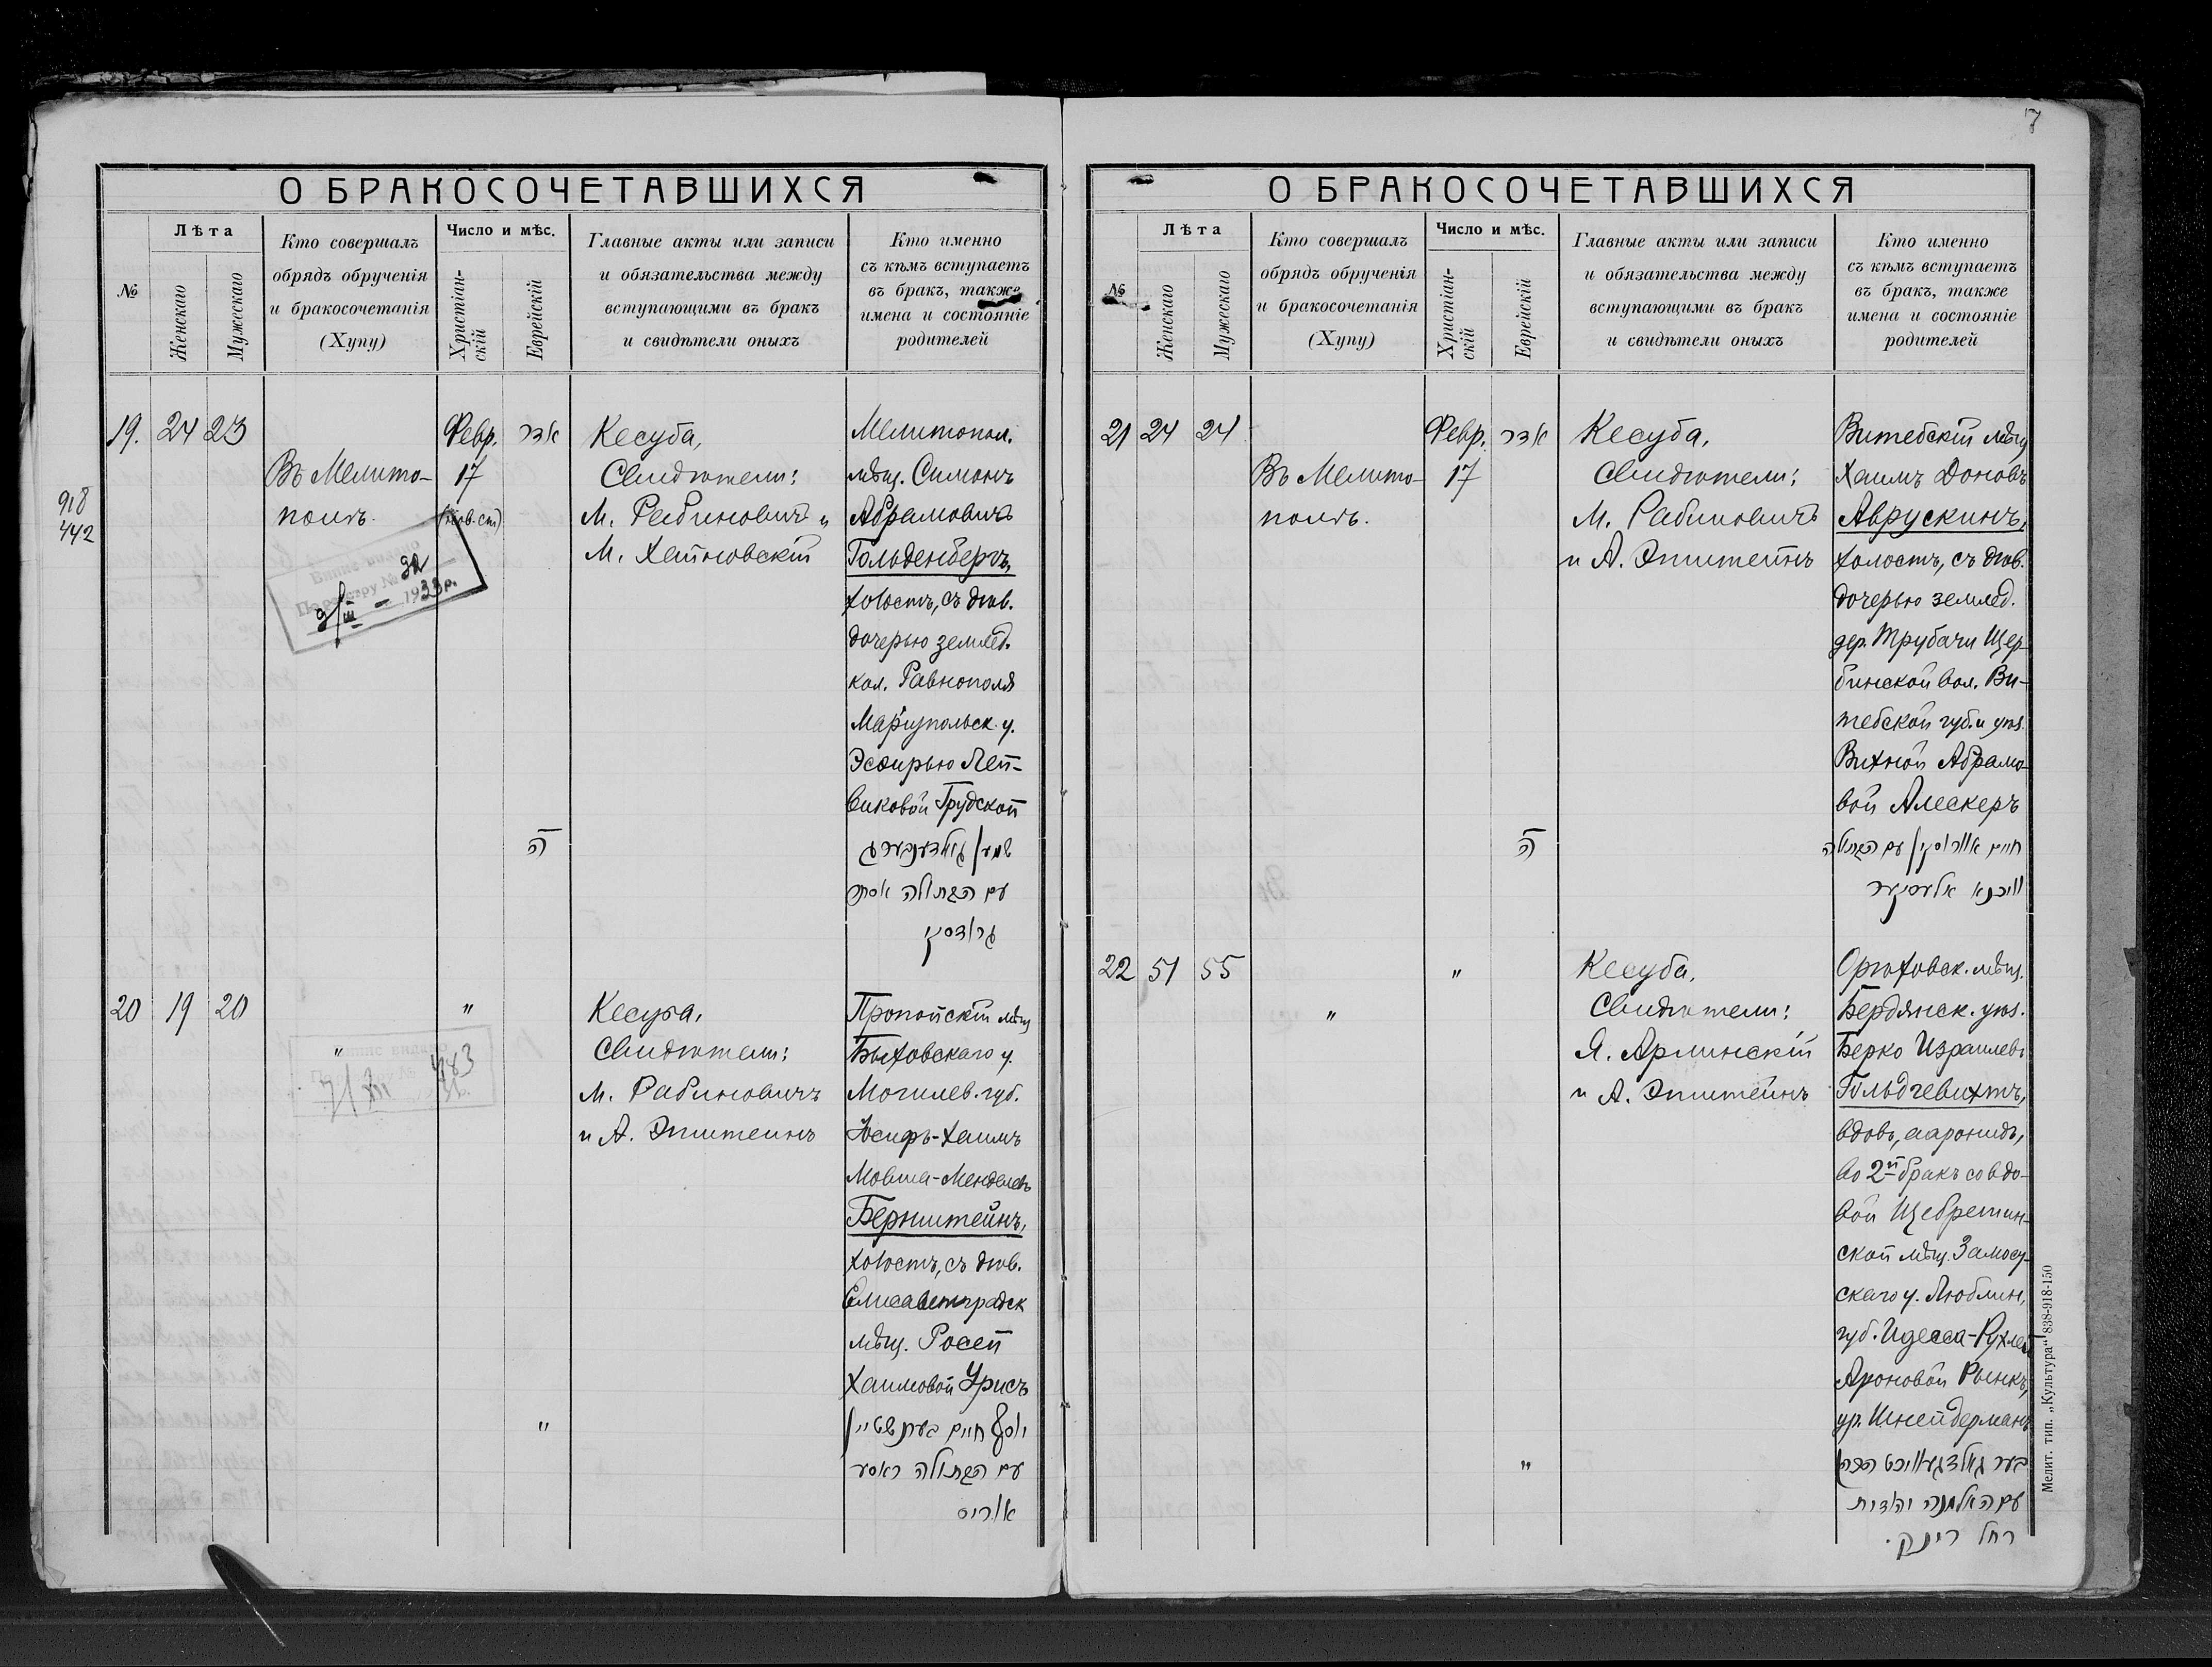 7
О БРАКОСОЧЕТАВШИХСЯ
№
Лѣта
Женскаго
Мужескаго
Кто совершалъ
обрядъ обрученія
и бракосочетанія
(Хупу)
Число и мѣс.
Христіан-
скій
Еврейскій
Главные акты или записи
и обязательства между
вступающими въ бракъ
и свидѣтели оныхъ
Кто именно
съ кѣмъ вступаетъ
въ бракъ, также
имена и состояніе
родителей
918
442
19. 24 23
Въ Мелито-
полѣ.
Февр. אדר
17
(нов. ст)
ה
Кесуба,
Свидѣтели:
М. Рабиновичъ и
М. Хайновскій
Мелитопол.
мѣщ. Симонъ
Абрамовичъ
Гольденбергъ,
холостъ, съ дѣв.
дочерью землед.
кол. Равнополя
Мариупольск. у.
Эсѳирью Лей-
виковой Грудской
שמעון גאלדענבערג
עם הבתולה אסתר
גרודסקי
Выпис видано
По реєстру № 32
9/III - 1933 р.
20 19 20
"
"
"
Кесуба,
Свидѣтели:
М. Рабиновичъ
и А. Эпштейнъ
Пропойскій мѣщ
Быховскаго у.
Могилев. губ.
Іосифъ-Хаимъ
Мовша-Менделевъ
Бернштейнъ,
холостъ, съ дѣв.
Елисаветградск
мѣщ. Росей
Хаимовой Урисъ
יוסף חיים בערנשטיין
עם הבתולה ראסע
אוריס
4183
7/XII
О БРАКОСОЧЕТАВШИХСЯ
№
Лѣта
Женскаго
Мужескаго
Кто совершалъ
обрядъ обрученія
и бракосочетанія
(Хупу)
Число и мѣс.
Христіан-
скій
Еврейскій
Главные акты или записи
и обязательства между
вступающими въ бракъ
и свидѣтели оныхъ
Кто именно
съ кѣмъ вступаетъ
въ бракъ, также
имена и состояніе
родителей
21 24 24
Въ Мелито-
полѣ.
Февр. אדר
17
ה
Кесуба,
Свидѣтели:
М. Рабиновичъ
и А. Эпштейнъ
Витебскій мѣщ
Хаимъ Доновъ
Аврускинъ,
холостъ, съ дѣв.
дочерью землед.
дер. Трубачи Щер-
бинской вол. Ви-
тебской губ. и уѣз.
Вихной Абрамо-
вой Алескеръ
חיים אוורוסקין עם הבתולה
וויכנא אלעסקער
22 51 55
"
"
"
Кесуба,
Свидѣтели:
Я. Арлинскій
и А. Эпштейнъ
Орѣховск. мѣщ.
Бердянск. уѣз.
Берко Израилевъ
Гольдгевихтъ,
вдовъ, ааронидъ,
во 2й бракъ со вдо-
вой Щебрешин-
ской мѣщ. Замос-
скаго у. Люблин.
губ. Идесса-Рухлей
Ароновой Рынкъ,
ур. Шнейдерманъ
בער גאלדגעוויכט הכהן
עם האלמנה יהודית
רחל רינק.
Мелит. тип. „Культура“ 838-918-150